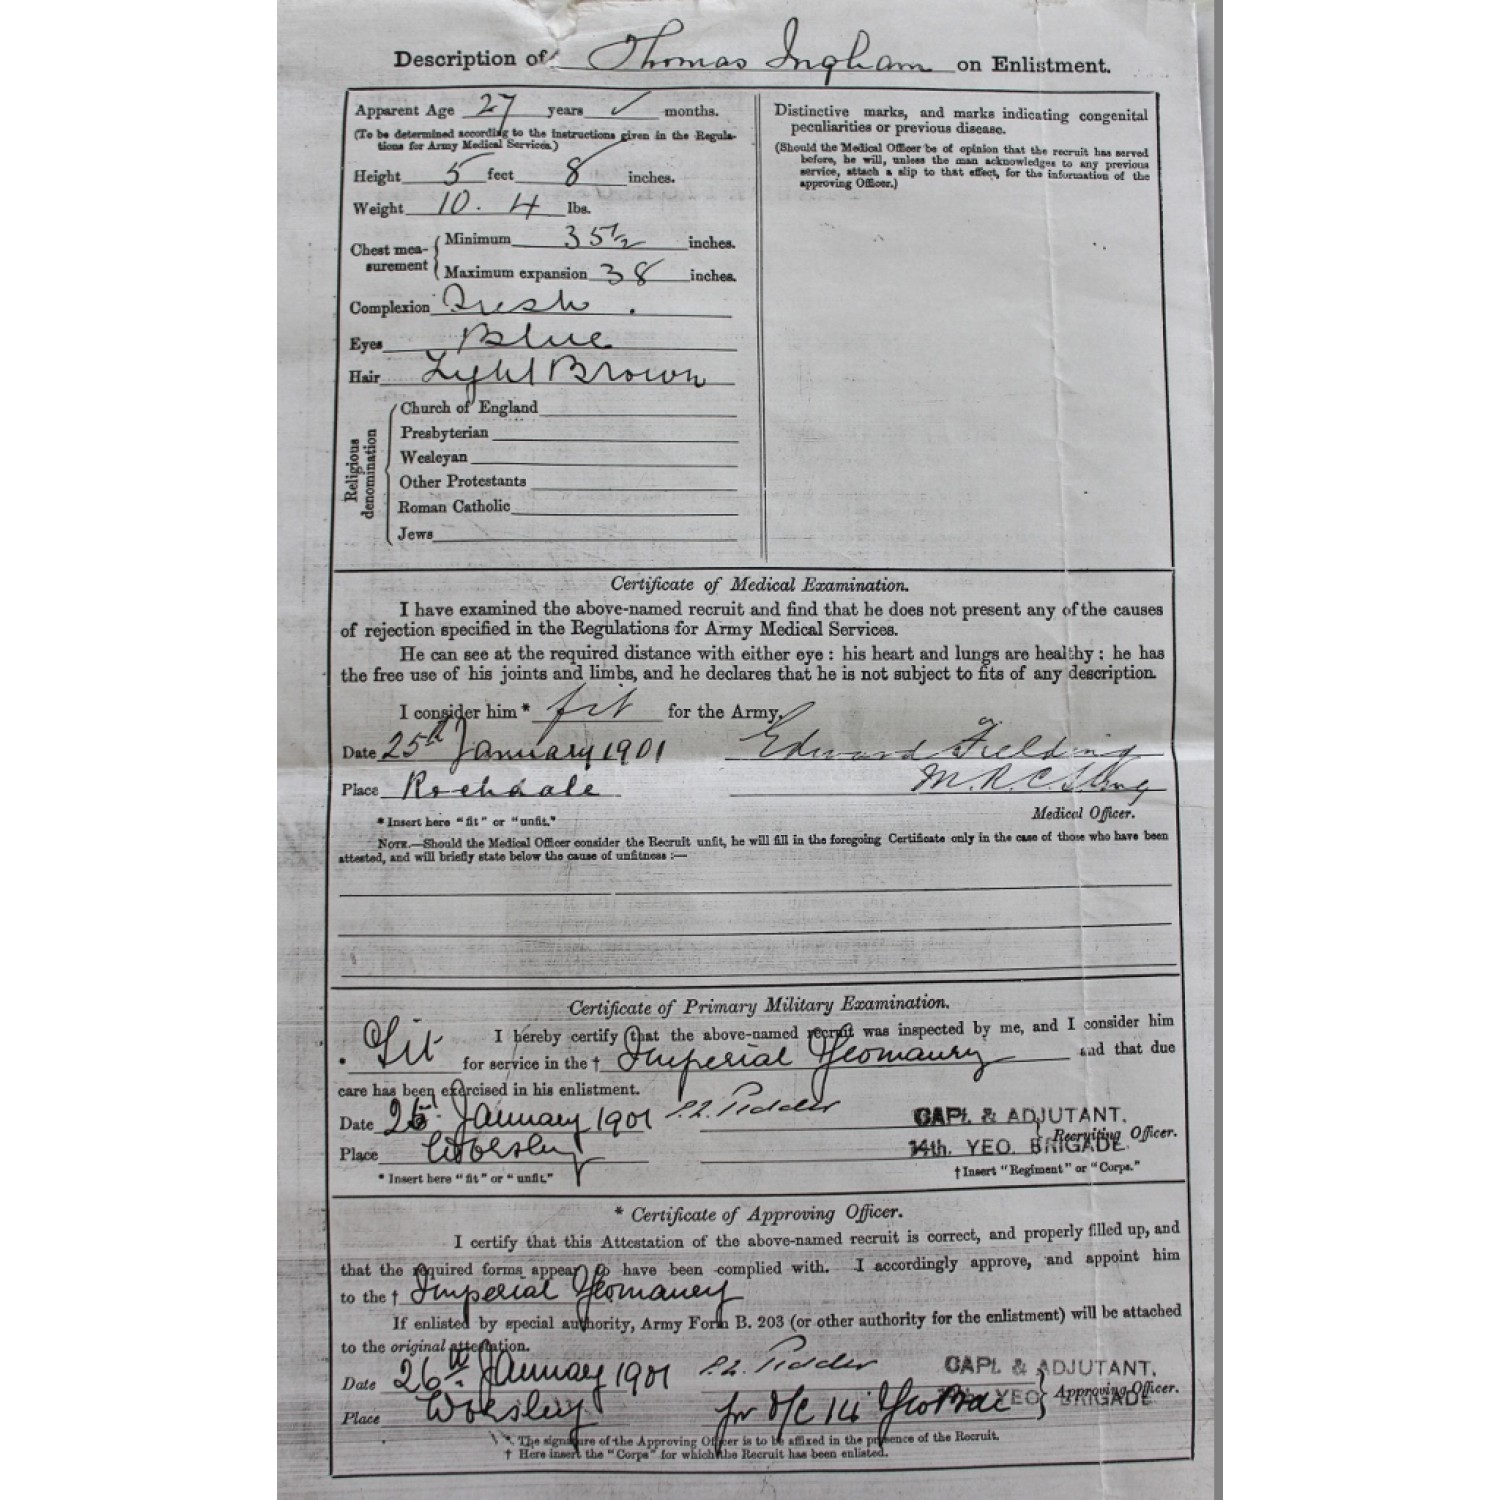 Description of Thomas Ingham on Enlistment.
Apparent Age 27 years ✓ months.
(To be determined according to the instructions given in the Regula-
tions for Army Medical Services.)
Height 5 feet 8 inches.
Weight 10. 4 lbs.
Chest mea-
surement
Minimum 35 1/2 inches.
Maximum expansion 38 inches.
Complexion Fresh.
Eyes Blue
Hair Light Brown
Religious
denomination
Church of England
Presbyterian
Wesleyan
Other Protestants
Roman Catholic
Jews
Distinctive marks, and marks indicating congenital
peculiarities or previous disease.
(Should the Medical Officer be of opinion that the recruit has served
before, he will, unless the man acknowledges to any previous
service, attach a slip to that effect, for the information of the
approving Officer.)
Certificate of Medical Examination.
I have examined the above-named recruit and find that he does not present any of the causes
of rejection specified in the Regulations for Army Medical Services.
He can see at the required distance with either eye : his heart and lungs are healthy : he has
the free use of his joints and limbs, and he declares that he is not subject to fits of any description.
I consider him * fit for the Army.
Date 25th January 1901 Edward Fielding
Place Rochdale M.R.C.S. Eng
* Insert here "fit" or "unfit." Medical Officer.
NOTE.—Should the Medical Officer consider the Recruit unfit, he will fill in the foregoing Certificate only in the case of those who have been
attested, and will briefly state below the cause of unfitness :—
Certificate of Primary Military Examination.
I hereby certify that the above-named recruit was inspected by me, and I consider him
* Fit for service in the † Imperial Yeomanry and that due
care has been exercised in his enlistment.
Date 26 January 1901 CAPT. & ADJUTANT,
Place Worsley 14th. YEO. BRIGADE. Recruiting Officer.
* Insert here "fit" or "unfit." † Insert "Regiment" or "Corps."
* Certificate of Approving Officer.
I certify that this Attestation of the above-named recruit is correct, and properly filled up, and
that the required forms appear to have been complied with. I accordingly approve, and appoint him
to the † Imperial Yeomanry
If enlisted by special authority, Army Form B. 203 (or other authority for the enlistment) will be attached
to the original attestation.
Date 26th January 1901 CAPT. & ADJUTANT,
Place Worsley for O/C 14 Yeo Bde YEO BRIGADE Approving Officer.
* The signature of the Approving Officer is to be affixed in the presence of the Recruit.
† Here insert the "Corps" for which the Recruit has been enlisted.